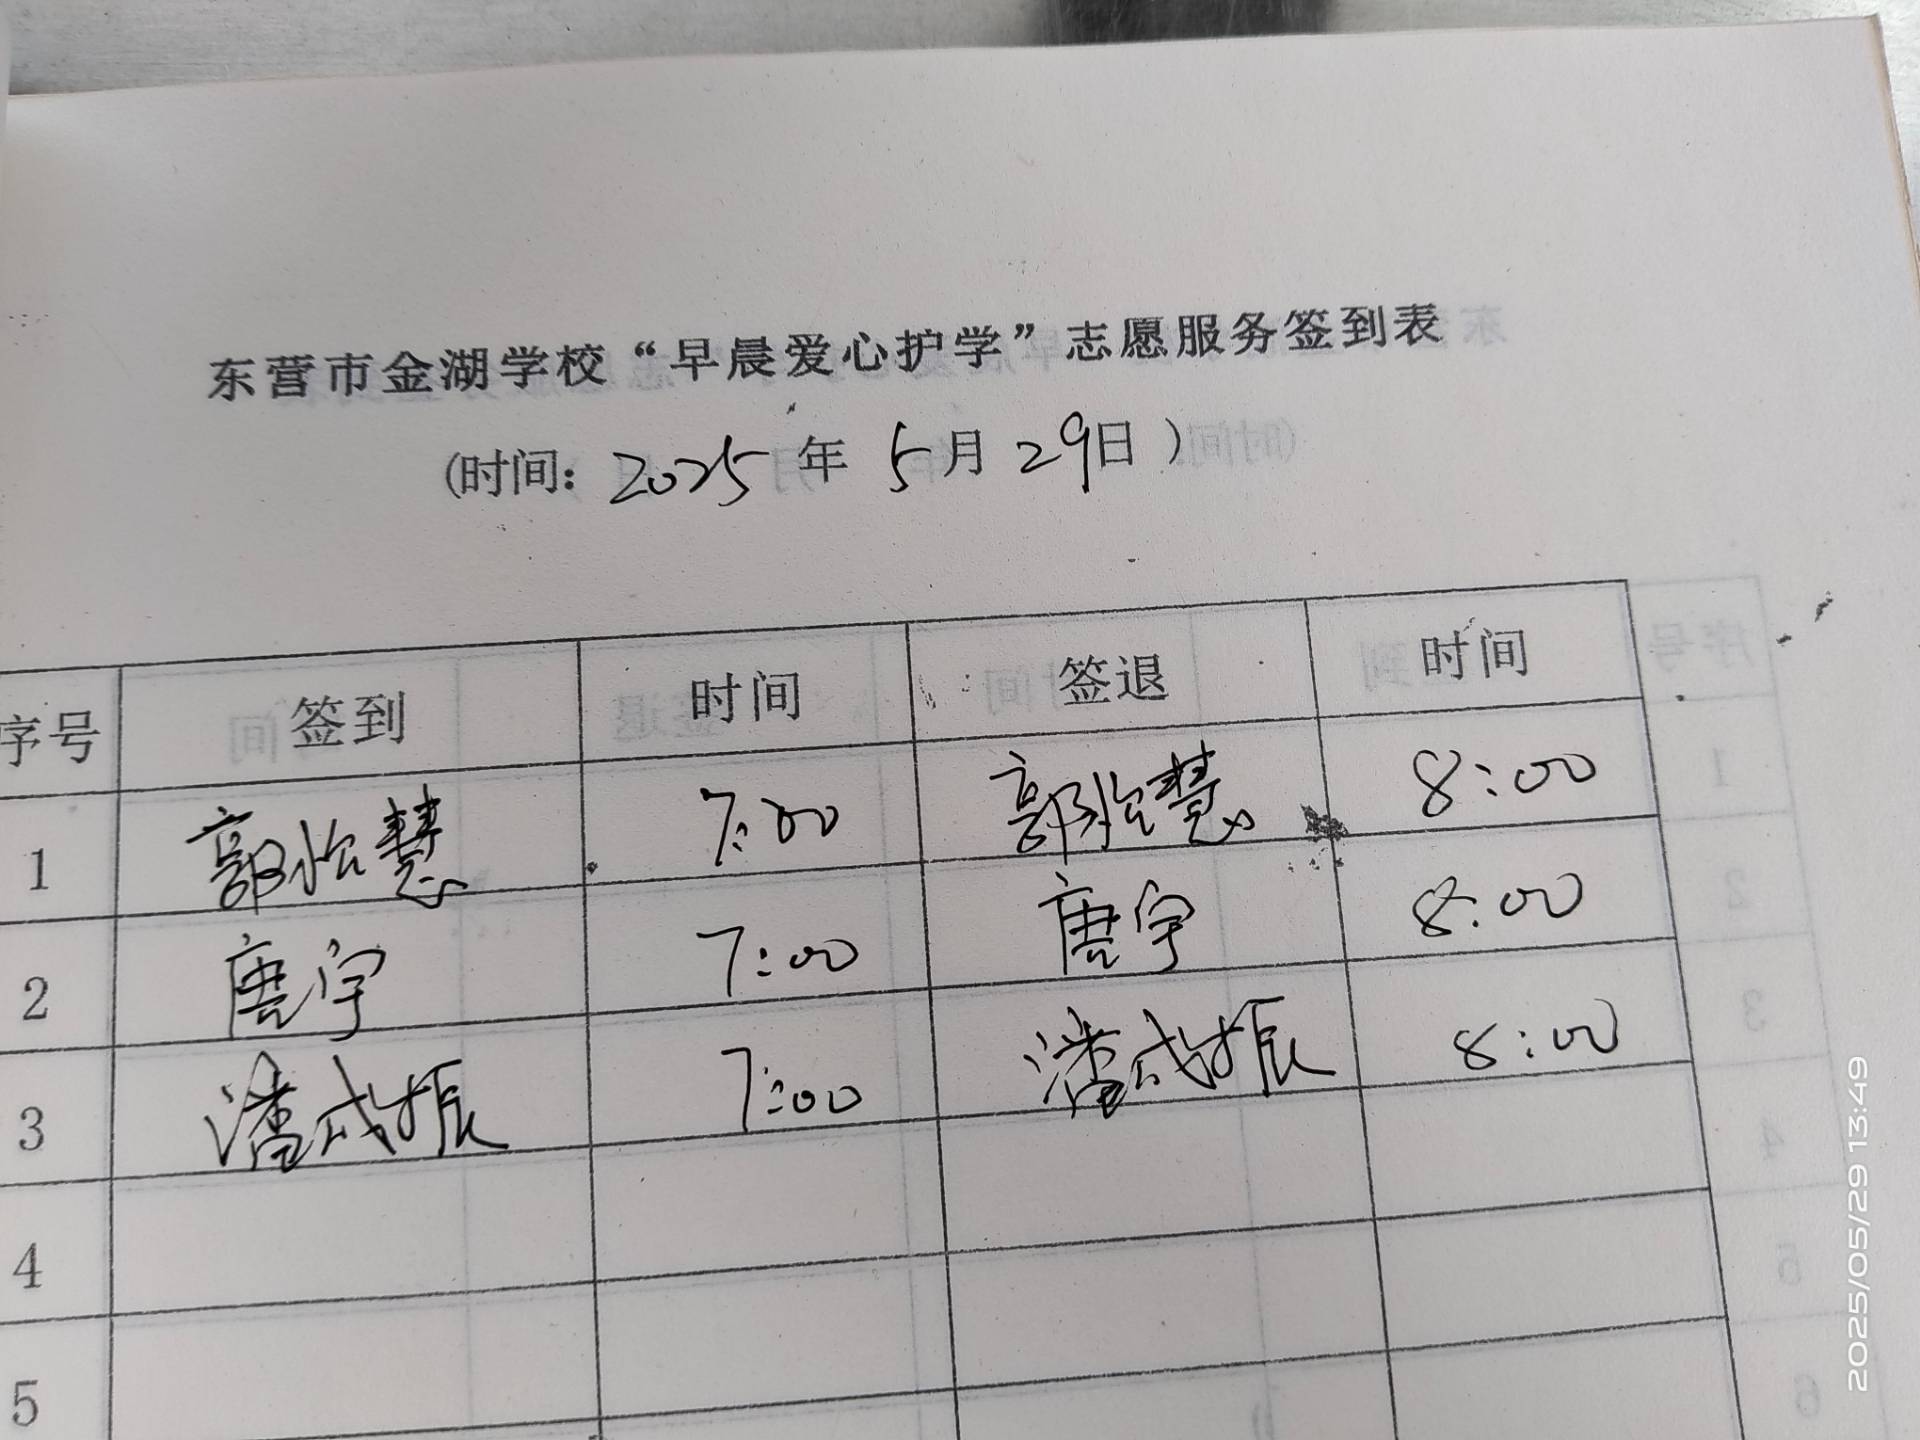 东营市金湖学校“早晨爱心护学”志愿服务签到表
(时间: 2025 年 5 月 29 日)
序号 签到 时间 签退 时间
1 郭怡慧 7:00 郭怡慧 8:00
2 唐宇 7:00 唐宇 8:00
3 潘成振 7:00 潘成振 8:00
4
5
2025/05/29 13:49